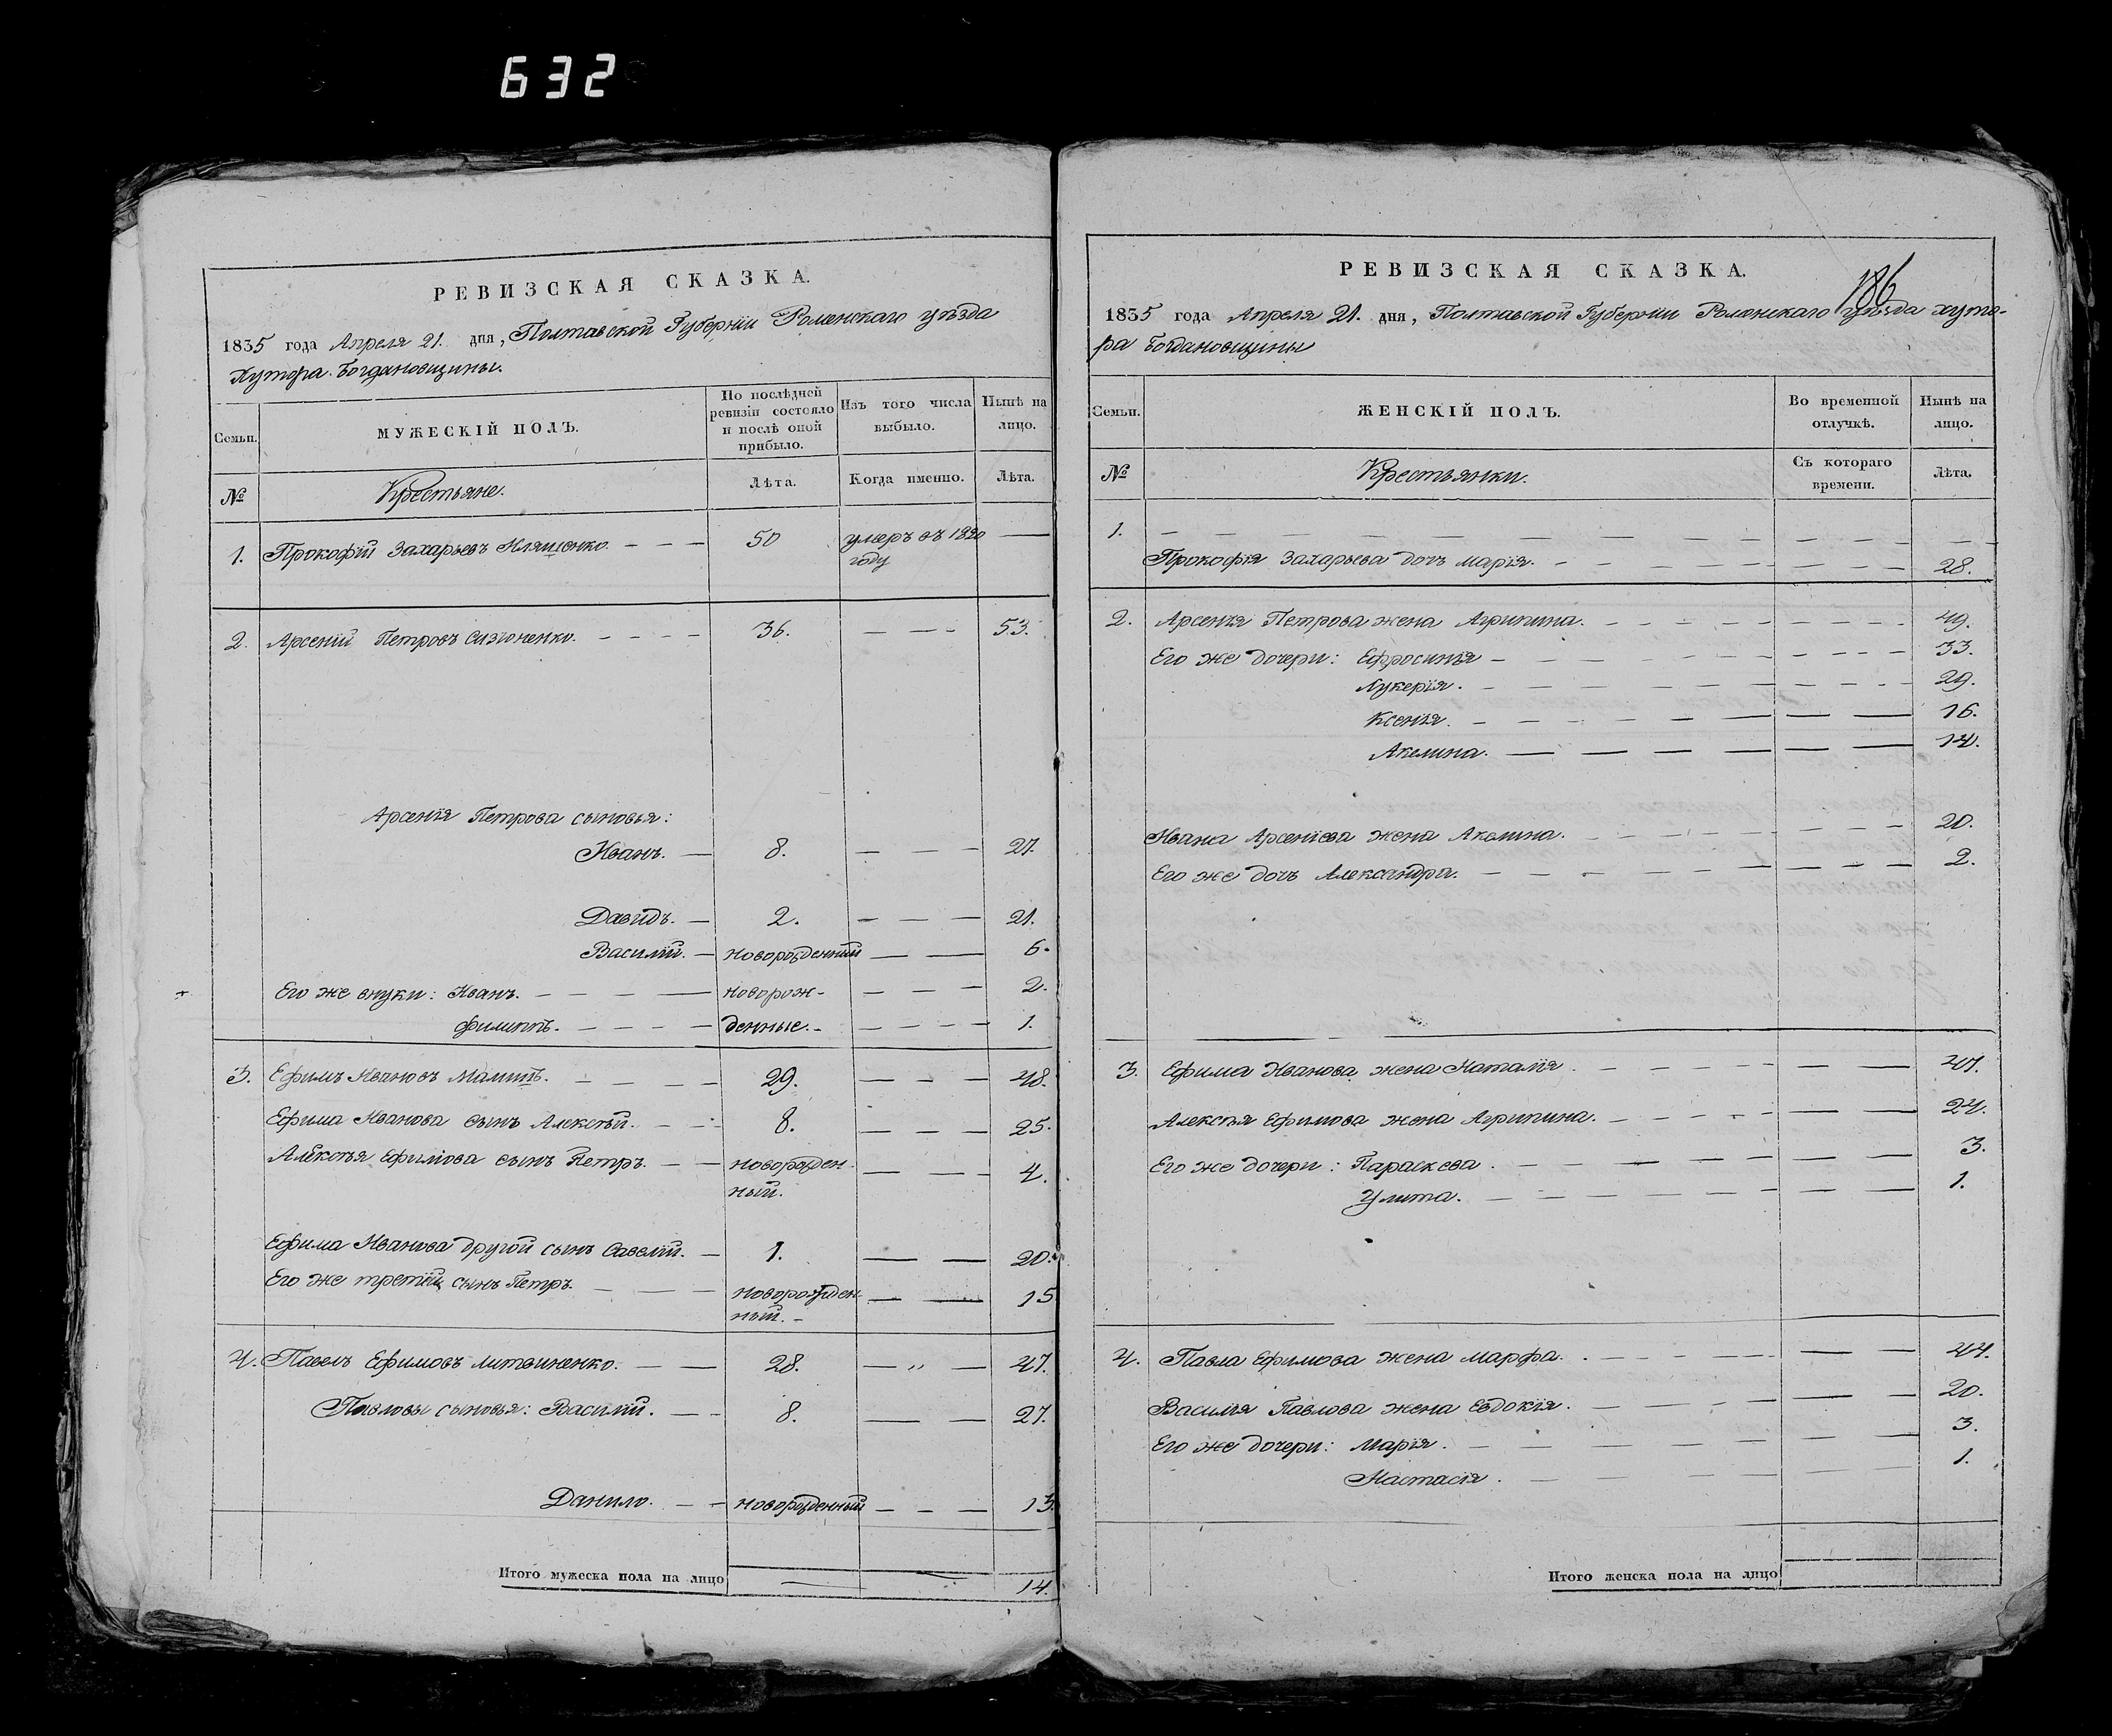 632
РЕВИЗСКАЯ СКАЗКА.
1835 года Апреля 21. дня, Полтавской Губерніи Роменскаго уѣзда
Хутора Богдановщины.
Семьи.
МУЖЕСКІЙ ПОЛЪ.
По послѣдней ревизіи состояло и послѣ оной прибыло.
Изъ того числа выбыло.
Нынѣ на лицо.
№
Крестьяне.
Лѣта.
Когда именно.
Лѣта.
1. Прокофій Захарьевъ Иляшенко. 50 умеръ въ 1820
году
2. Арсеній Петровъ Сизоненко. 36. 53.
Арсенія Петрова сыновья:
Иванъ. 8. 27.
Давидъ. 2. 21.
Василій. новорожденный 6.
Его же внуки: Иванъ. новорож- 2.
Филиппъ. денные. 1.
3. Ефимъ Ивановъ 29. 48.
Ефима Иванова сынъ Алексѣй. 8. 25.
Алексѣя Ефимова сынъ Петръ. новорожден 4.
ный.
Ефима Иванова другой сынъ Савелій. 1. 20.
Его же третій сынъ Петръ. новорожден 15
ный.
4. Павелъ Ефимовъ Литвиненко. 28. „ 47.
Павловы сыновья: Василій. 8. 27.
Данило. новорожденный 13.
Итого мужеска пола на лицо 14.
РЕВИЗСКАЯ СКАЗКА.
186
1835 года Апреля 21. дня, Полтавской Губерніи Роменскаго уѣзда хуто-
ра Богдановщины
Семьи.
ЖЕНСКІЙ ПОЛЪ.
Во временной отлучкѣ.
Нынѣ на лицо.
№
Крестьянки.
Съ котораго времени.
Лѣта.
1.
Прокофія Захарьева дочь Марія. 28.
2. Арсенія Петрова жена Агрипина. 49.
Его же дочери: Ефросинія 33.
Лукерія. 29.
Ксенія. 16.
Акелина. 14.
Ивана Арсеніева жена Акелина. 20.
Его же дочь Александра. 2.
3. Ефима Иванова жена Наталія. 47.
Алексѣя Ефимова жена Агрипина. 24.
Его же дочери: Параскева. 3.
Улита. 1.
4. Павла Ефимова жена Марфа. 44.
Василія Павлова жена Евдокія. 20.
Его же дочери: Марія. 3.
Настасія. 1.
Итого женска пола на лицо